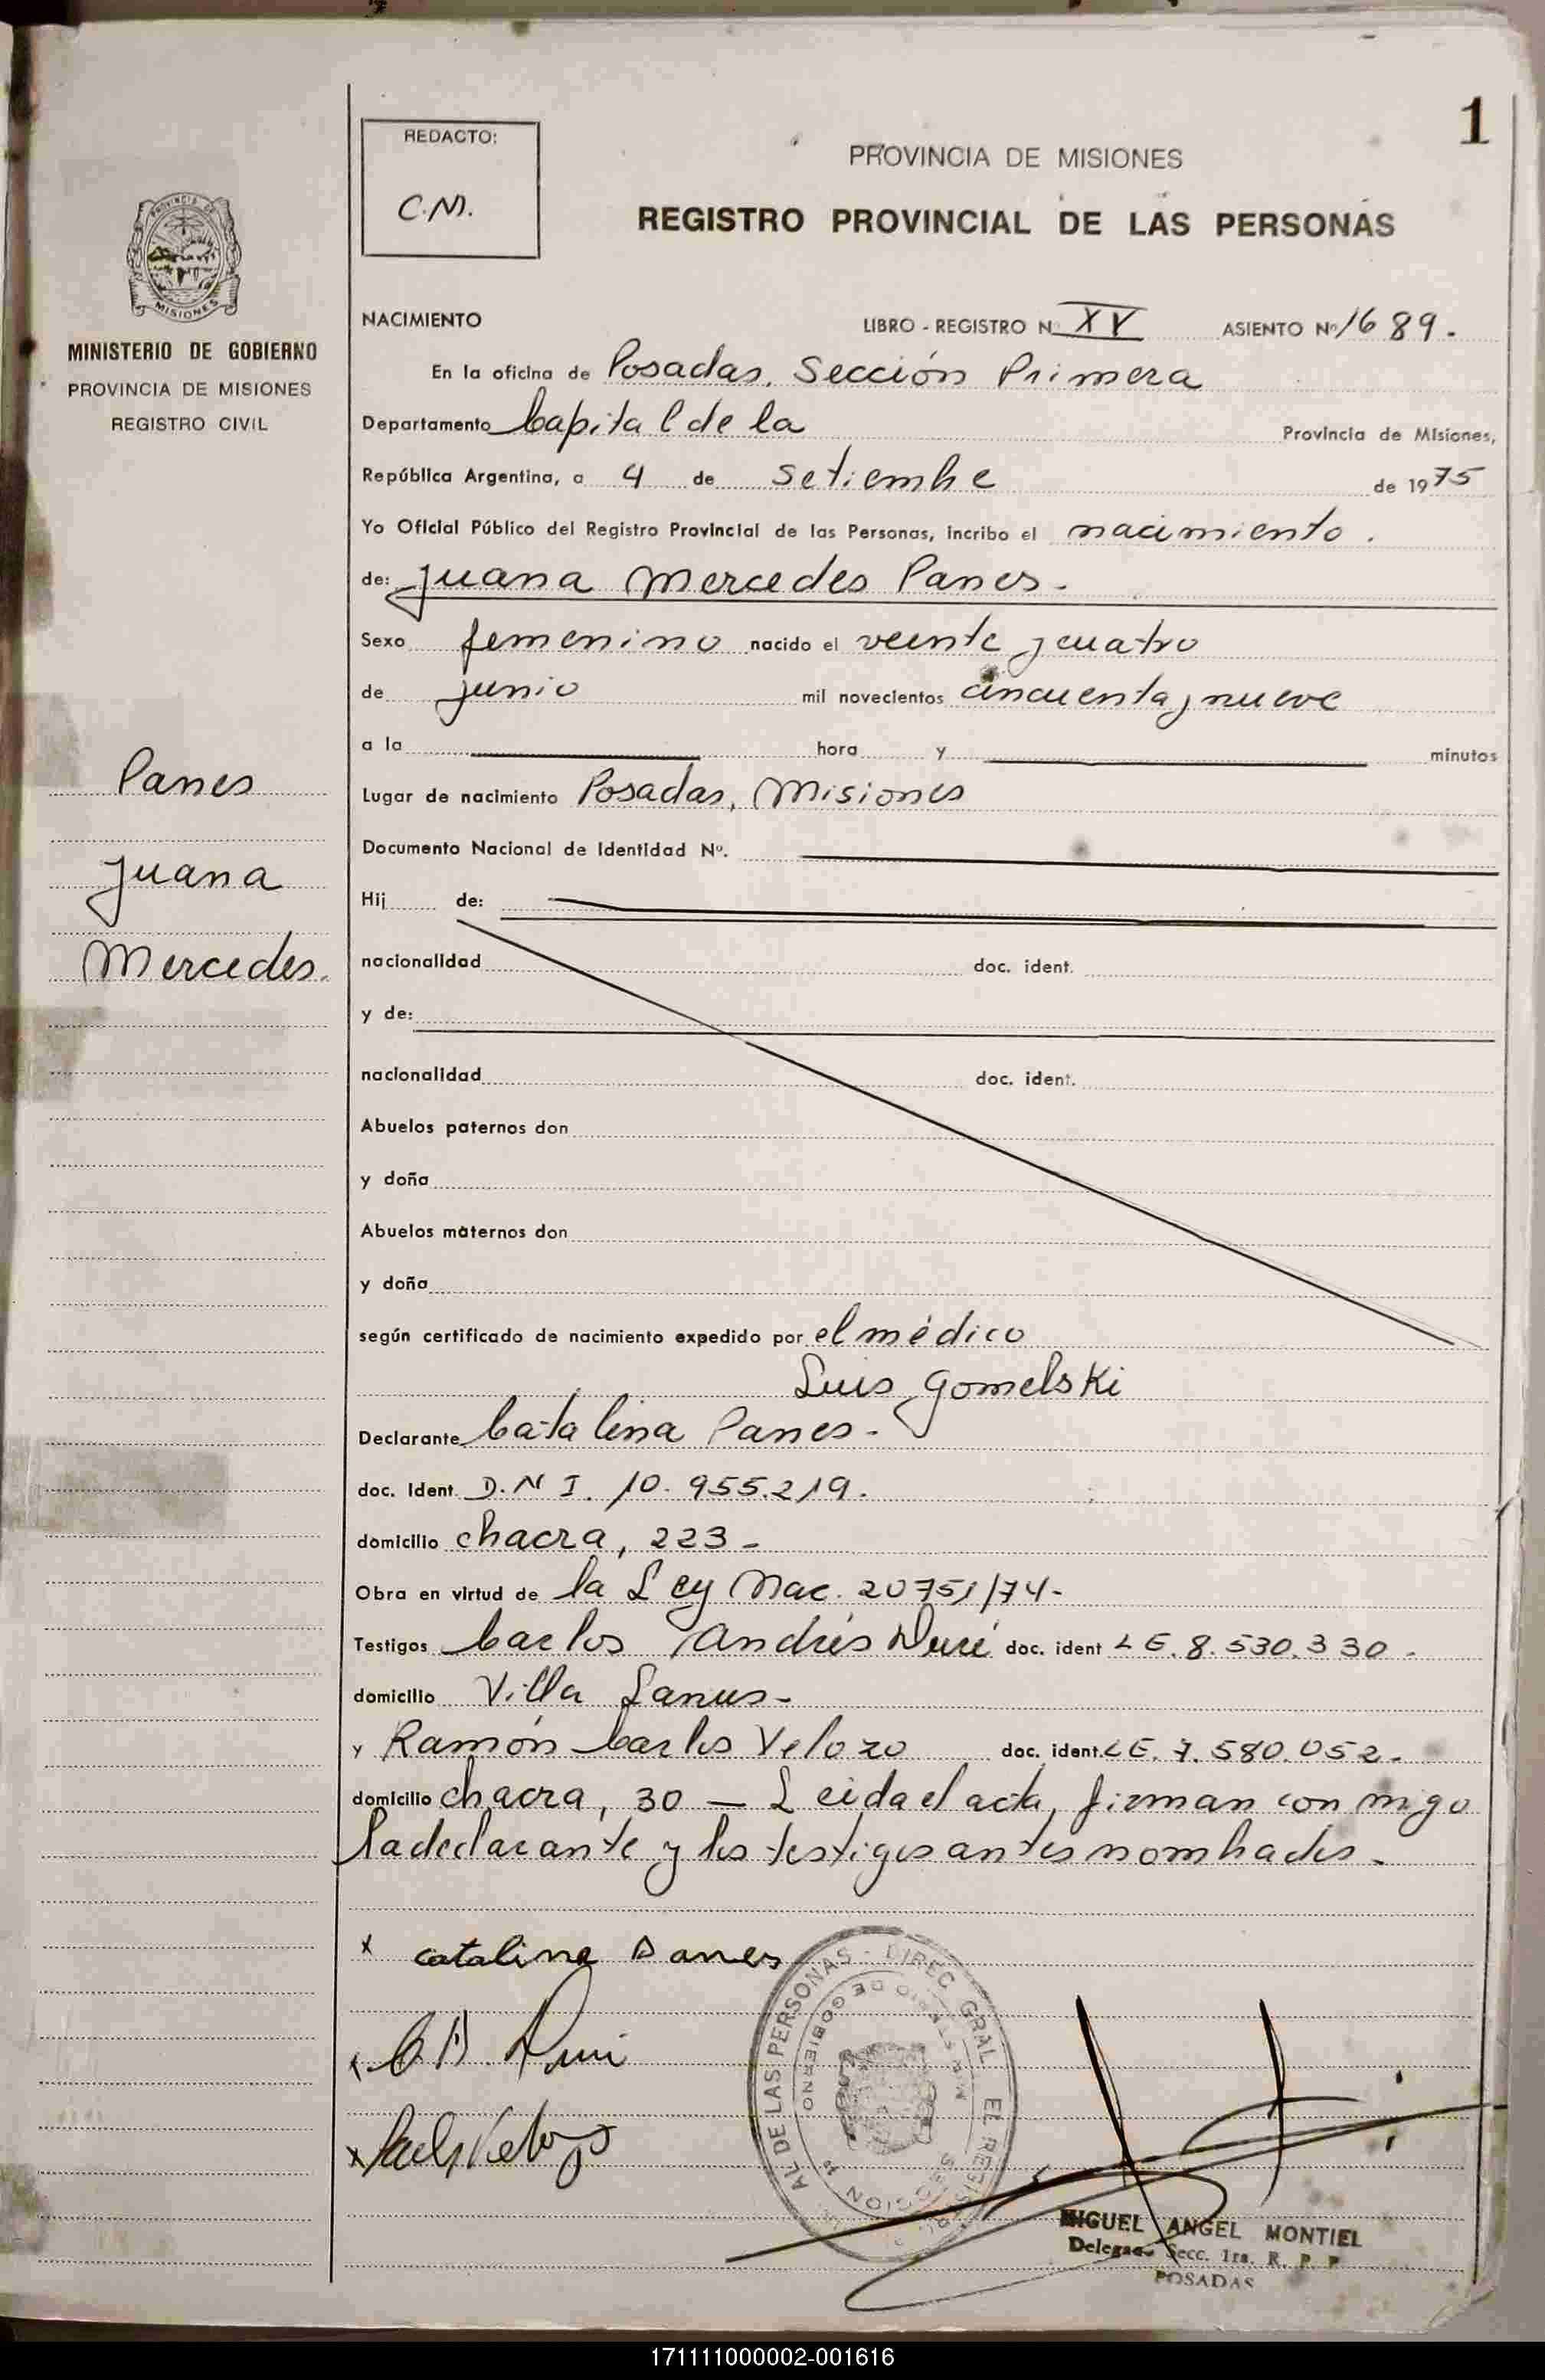 1
REDACTO:
C.M.
PROVINCIA DE MISIONES
REGISTRO PROVINCIAL DE LAS PERSONAS
MISIONES
MINISTERIO DE GOBIERNO
PROVINCIA DE MISIONES
REGISTRO CIVIL
NACIMIENTO LIBRO - REGISTRO N XV ASIENTO Nº 1689.
En la oficina de Posadas, Sección Primera
Departamento Capital de la Provincia de Misiones,
República Argentina, a 4 de Setiembre de 1975
Yo Oficial Público del Registro Provincial de las Personas, incribo el nacimiento.
de: Juana Mercedes Panes.
Sexo femenino nacido el veinte y cuatro
de junio mil novecientos cincuenta y nueve
a la hora y minutos
Panes
Juana
Mercedes.
Lugar de nacimiento Posadas, Misiones
Documento Nacional de Identidad Nº.
Hij de:
nacionalidad doc. ident.
y de:
nacionalidad doc. ident.
Abuelos paternos don
y doña
Abuelos maternos don
y doña
según certificado de nacimiento expedido por el médico
Luis Gomelski
Declarante Catalina Panes.
doc. Ident. D.N I. 10.955.219.
domicilio chacra, 223 -
Obra en virtud de la Ley Nac. 20751/74-
Testigos Carlos Andrés Duré doc. ident L E. 8.530.330.
domicilio Villa Lanus-
y Ramón Carlos Velozo doc. ident. L E. 7.580.052-
domicilio chacra, 30 — Leida el acta, firman con migo
la declarante y los testigos antes nombrados.
x catalina Panes
AL DE LAS PERSONAS - DIREC. GRAL. EL REGIS
MINISTERIO DE GOBIERNO
SECCION 1ª
MIGUEL ANGEL MONTIEL
Delegado Secc. 1ra. R. P. P
POSADAS
171111000002-001616